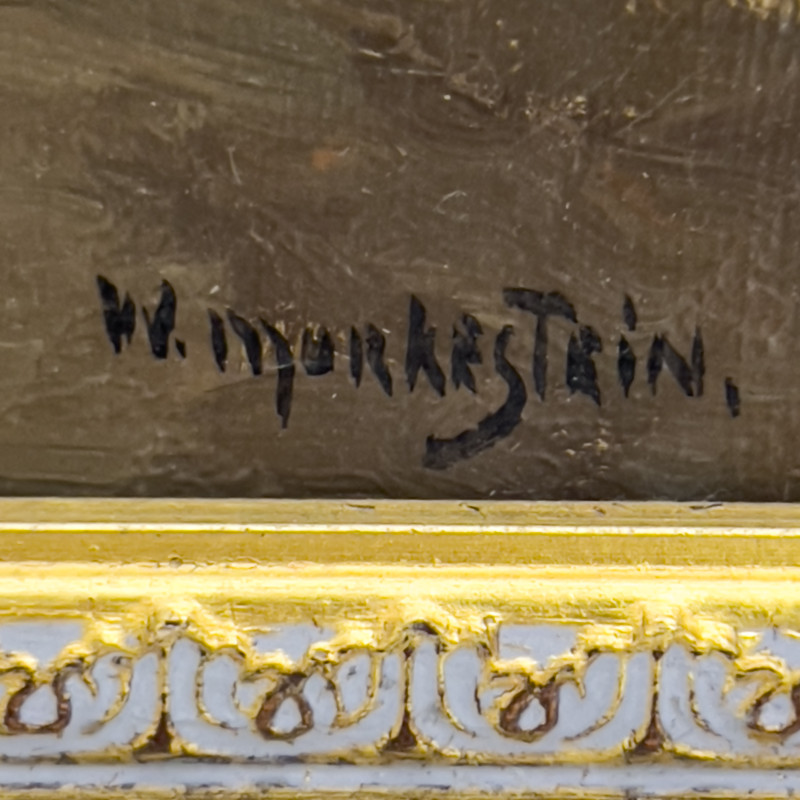 W. MONKESTEIN.